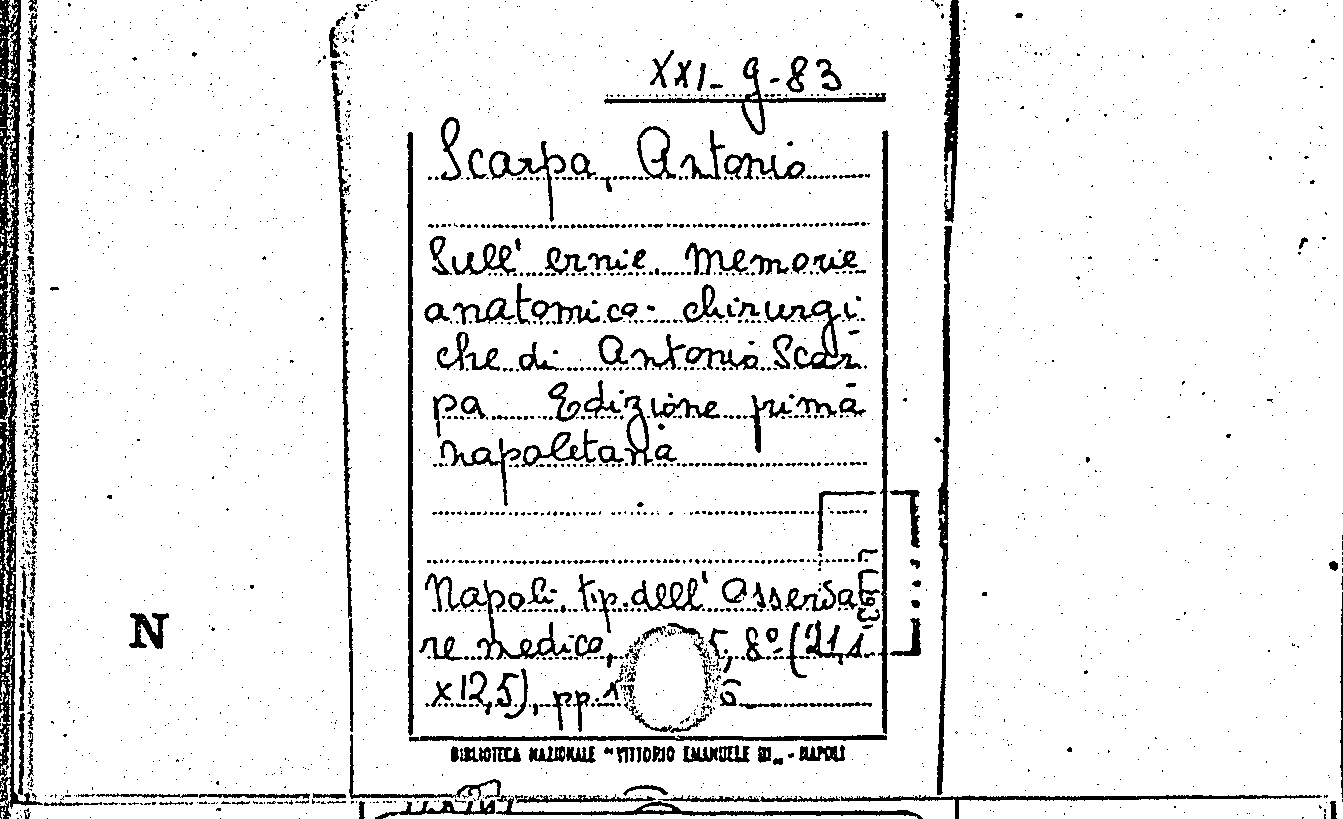 XXI-g-83
Scarpa, Antonio
Sull' ernie. Memorie
anatomico-chirurgi
che di Antonio Scar
pa Edizione prima
napoletana
Napoli, tip. dell'
re medico, 8° (21,1
x12,5), pp.
N
BIBLIOTECA NAZIONALE "VITTORIO EMANUELE III" - NAPOLI